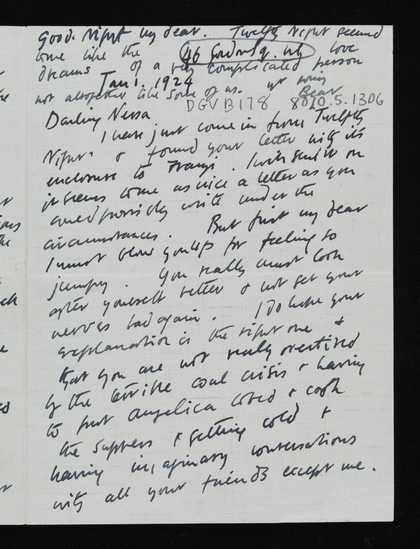 Good night my dear. Twelfth Night seemed
to me like the
46 Gordon Sq. WC
love
dreams of a very complicated person
Jan 1, 1924
not altogether like some of us. yr loving
Bear
DGVB178 8010.5.1306
Darling Nessa
I have just come in from Twelfth
Night & found your letter with its
enclosure to Frangi. I will send it on
it seems to me as nice a letter as you
could possibly write under the
circumstances. But first my dear
I must blow you up for feeling so
jumpy. You really must look
after yourself better & not get your
nerves bad again. I do hope your
explanation is the right one &
that you are not really overtired
by the terrible coal crisis & having
to put Angelica to bed & cook
the suppers & getting cold &
having imaginary conversations
with all your friends except me.